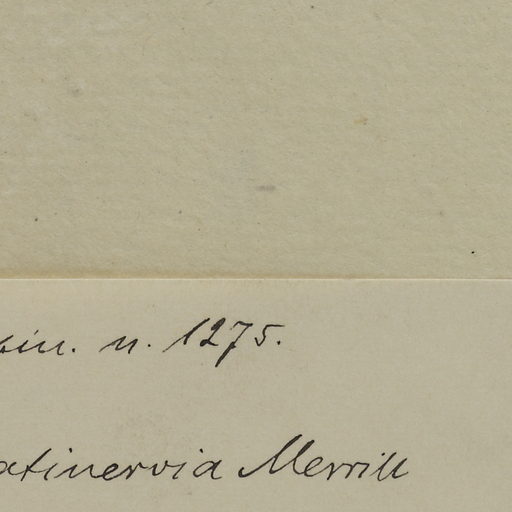 n. 1275.
atinervia Merrill